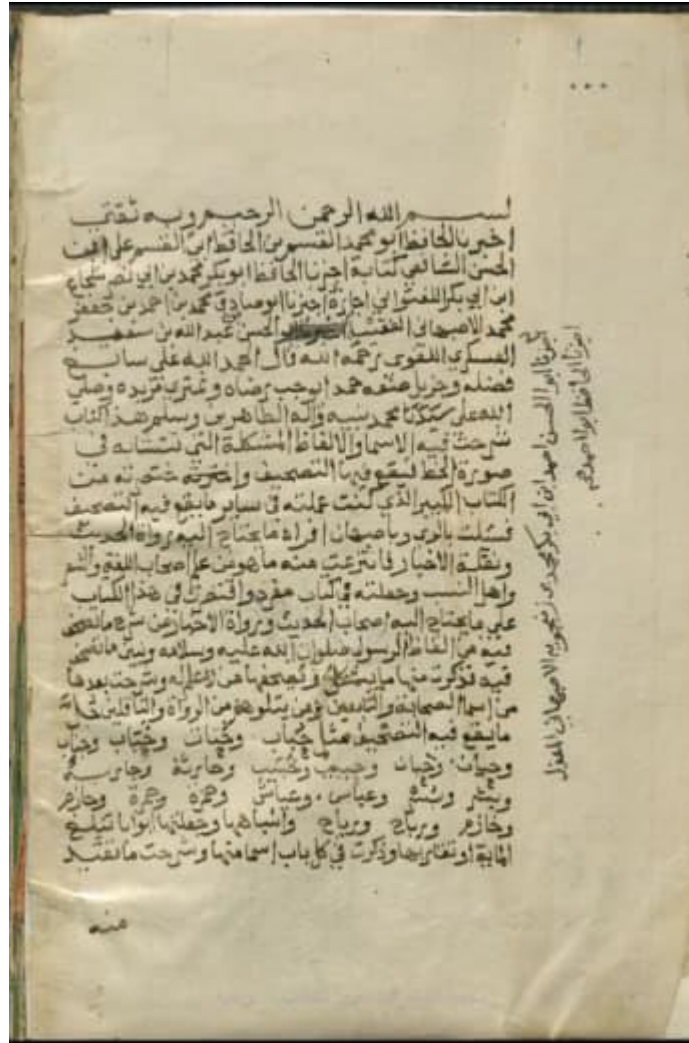 بسم الله الرحمن الرحيم وبه ثقتي
اخبرنا الحافظ ابو محمد القسم بن الحافظ ابى القسم على ابن
الحسن الشافعي كتابة اخبرنا الحافظ ابو بكر محمد بن ابي نصر شجاع
ابن ابي بكر اللفتواني اجازة اخبرنا ابو صادق محمد بن احمد بن جعفر
محمد الاصبهاني الفقيه الحسن عبد الله بن سعيد
العسكري اللغوي رحمه الله قال احمد الله على سابغ
فضله وجزيل صنعه حمدا يوجب رضاه ويمتري مزيده وصلى
الله على سيدنا محمد نبيه وآله الطاهرين وسلم هذا كتاب
شرحت فيه الاسما والالفاظ المشكلة التي تتشابه في
صورة الخط فيقع فيها التصحيف
الكتاب الكبير الذي كنت عملته في ساير ما يقع فيه التصحيف
فسئلت بالري وباصبهان افراد ما يحتاج اليه رواة الحديث
ونقلة الاخبار فانتزعت منه ما هو من علم اصحاب اللغة
واهل النسب وجعلته في كتاب مفرد واقتصرت في هذا الكتاب
على ما يحتاج اليه اصحاب الحديث ورواة الاخبار من شرح ما
فيه من الفاظ الرسول صلوات الله عليه وسلامه وبين ما
فيه فذكرت منها ما يشكل وشرحت بعدها
من اسما الصحابة والتابعين ومن يتلوهم من الرواة والناقلين
ما يقع فيه التصحيف مثل حباب وخباب
وحبان وحبيب وخبيب وحارثة وجارية
وبشر وبسر وعباس وعياش وحمزة وجمرة وحازم
وخازم ورباح ورياح واشباهها وجعلتها ابوابا تبلغ
الماية او تقاربها وذكرت في كل باب اسما منها وشرحت ما تقيد
منه
اخبرنا ابو الحسن احمد بن ابي بكر محمد بن زنجويه الاصبهاني
اخبرنا الحافظ ابو